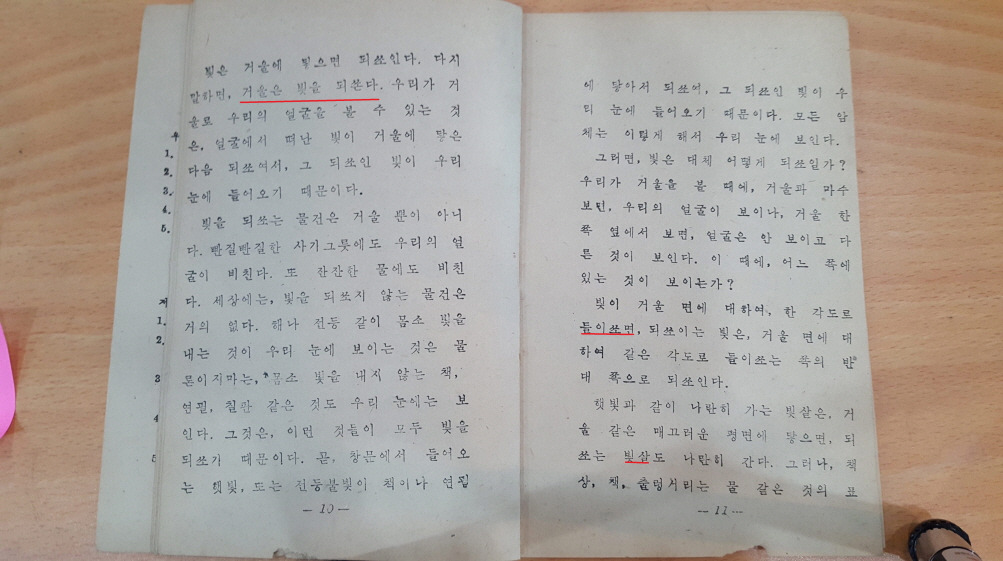 빛은 거울에 닿으면 되쏘인다. 다시
말하면, 거울은 빛을 되쏜다. 우리가 거
울로 우리의 얼굴을 볼 수 있는 것
은, 얼굴에서 떠난 빛이 거울에 닿은
다음 되쏘여서, 그 되쏘인 빛이 우리
눈에 들어오기 때문이다.
빛을 되쏘는 물건은 거울 뿐이 아니
다. 빤질빤질한 사기그릇에도 우리의 얼
굴이 비친다. 또 잔잔한 물에도 비친
다. 세상에는, 빛을 되쏘지 않는 물건은
거의 없다. 해나 전등 같이 몸소 빛을
내는 것이 우리 눈에 보이는 것은 물
론이지마는, 몸소 빛을 내지 않는 책,
연필, 칠판 같은 것도 우리 눈에는 보
인다. 그것은, 이런 것들이 모두 빛을
되쏘기 때문이다. 곧, 창문에서 들어오
는 햇빛, 또는 전등불빛이 책이나 연필
— 10 —
우
1.
2.
3.
4.
5.
1.
2.
3
4
5
에 닿아서 되쏘여, 그 되쏘인 빛이 우
리 눈에 들어오기 때문이다. 모든 암
체는 이렇게 해서 우리 눈에 보인다.
그러면, 빛은 대체 어떻게 되쏘일가?
우리가 거울을 볼 때에, 거울과 마주
보면, 우리의 얼굴이 보이나, 거울 한
쪽 옆에서 보면, 얼굴은 안 보이고 다
른 것이 보인다. 이 때에, 어느 쪽에
있는 것이 보이는가?
빛이 거울 면에 대하여, 한 각도르
들이쏘면, 되쏘이는 빛은, 거울 면에 대
하여 같은 각도로 들이쏘는 쪽의 반
대 쪽으로 되쏘인다.
햇빛과 같이 나란히 가는 빛살은, 거
울 같은 매끄러운 평면에 닿으면, 되
쏘는 빛살도 나란히 간다. 그러나, 책
상, 책, 출렁서리는 물 같은 것의 표
— 11 —